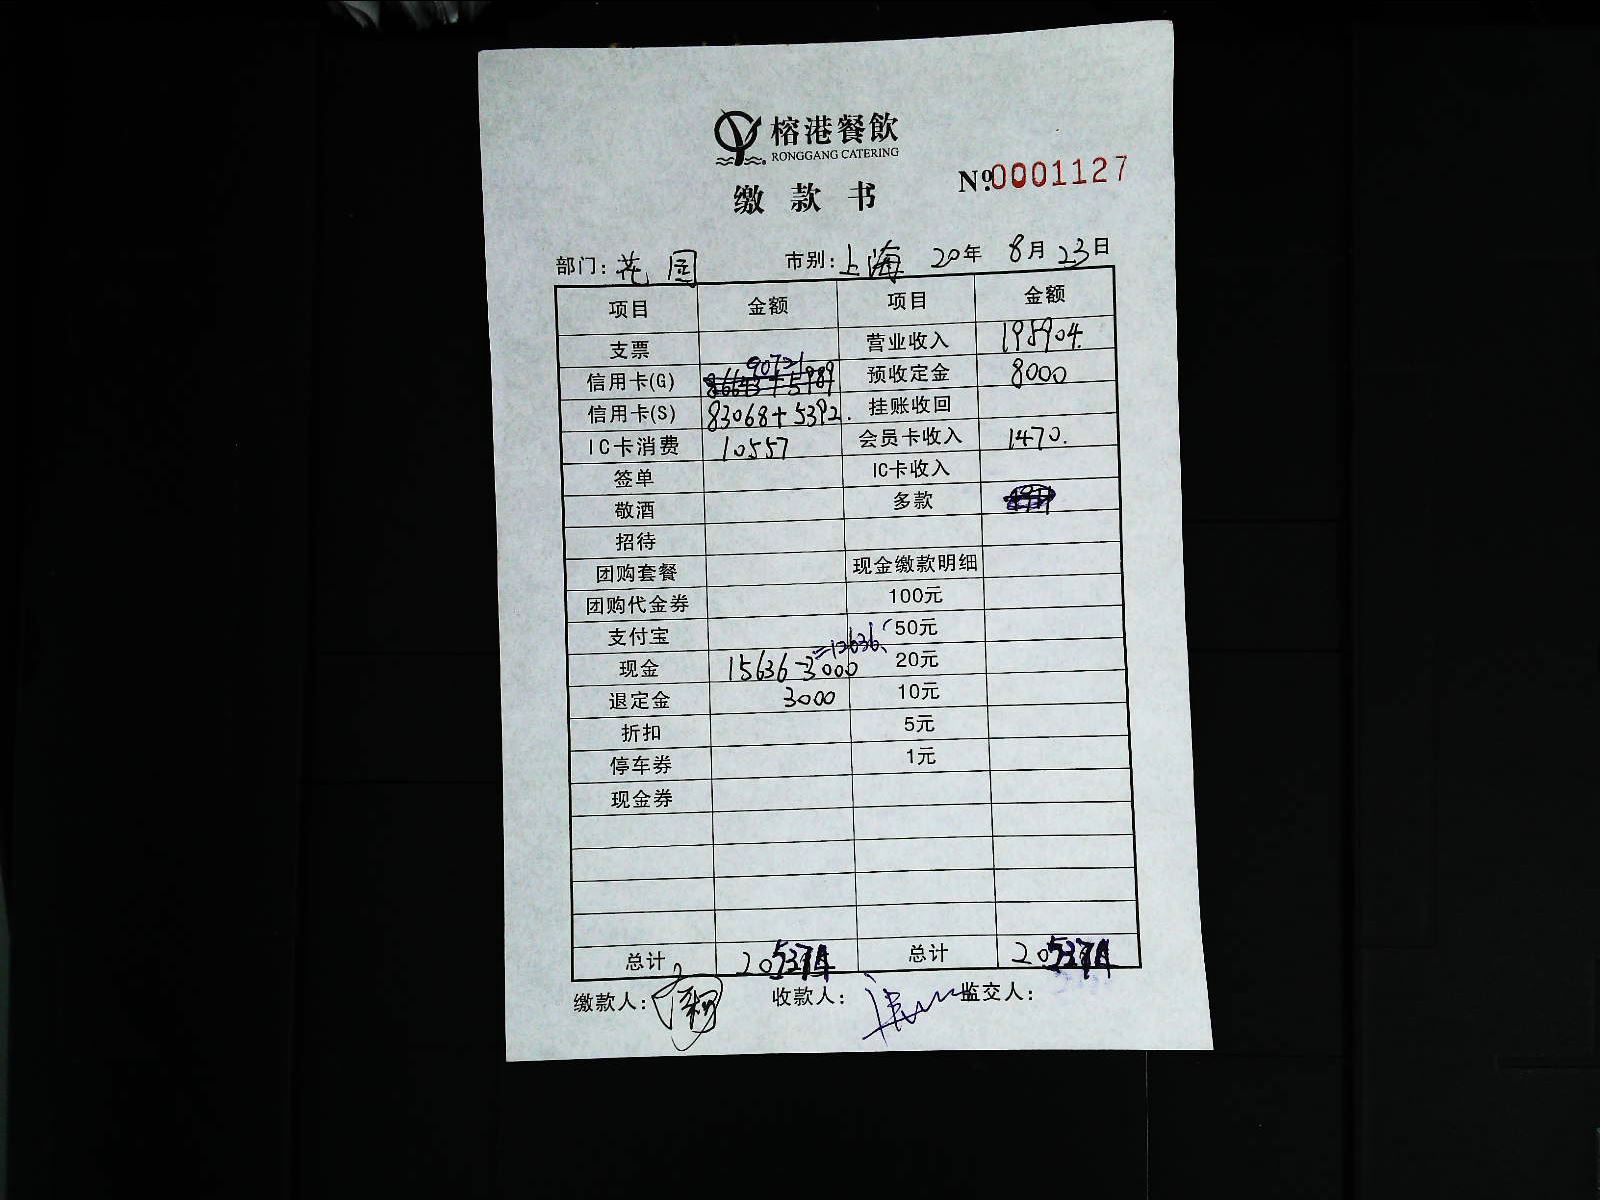 榕港餐飲
RONGGANG CATERING
缴款书
№0001127
部门: 花园 市别: 上海 20年 8月 23日
项目 金额 项目 金额
支票 营业收入 195904.
信用卡(G) 90721 预收定金 8000
信用卡(S) 83068+5392. 挂账收回
IC卡消费 10557 会员卡收入 1470.
签单 IC卡收入
敬酒 多款
招待
团购套餐 现金缴款明细
团购代金券 100元
支付宝 50元
现金 15636-3000=12636 20元
退定金 3000 10元
折扣 5元
停车券 1元
现金券
总计 205374 总计 205374
缴款人: 收款人: 监交人: